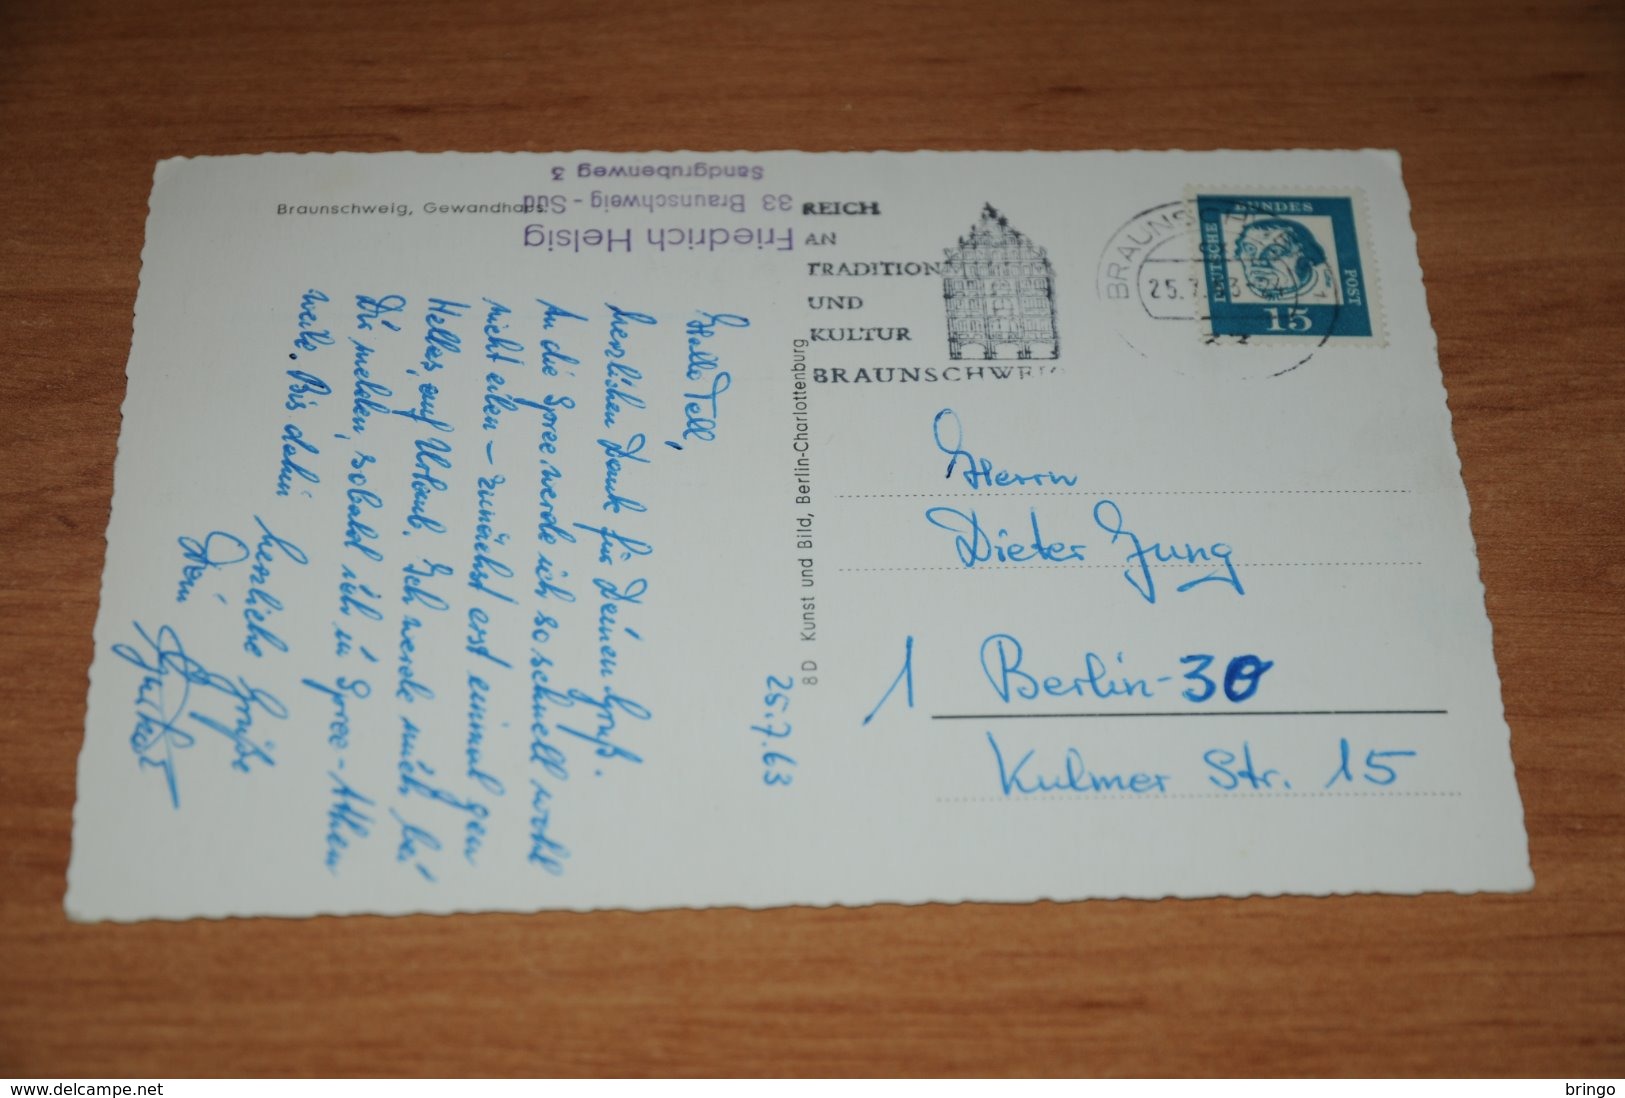 Braunschweig, Gewandhaus.
Friedrich Helsig
33 Braunschweig - Süd
Sandgrubenweg 3
REICH
AN
TRADITION
UND
KULTUR
BRAUNSCHWEIG
BRAUNSCHWEIG
25.7.63
DEUTSCHE
BUNDES
POST
15
25.7.63
Hallo Tell,
herzlichen Dank für Deinen Gruß.
An die Spree werde ich so schnell wohl
nicht eilen – zunächst erst einmal gen
auf Urlaub. Ich werde mich bei
Dir melden, sobald ich in Spree-Athen
weile. Bis dahin
herzliche Grüße
Dein
8 D Kunst und Bild, Berlin-Charlottenburg
Herrn
Dieter Jung
1 Berlin-30
Kulmer Str. 15
www.delcampe.net
bringo